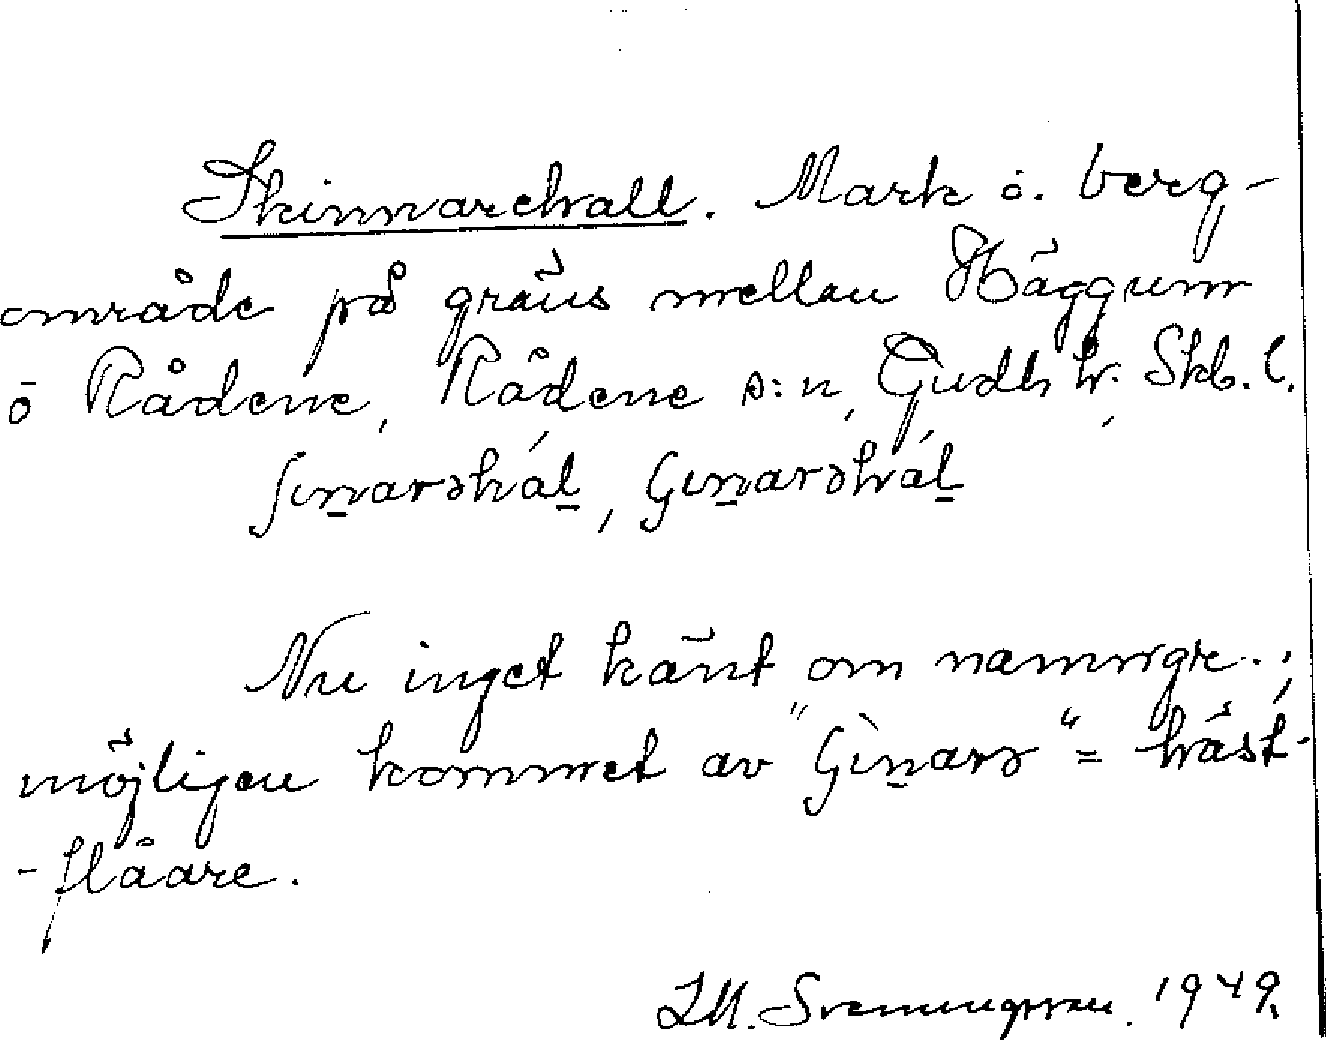 Skinnarehall. Mark o. berg-
område på gräns mellan Häggum
o Rådene, Rådene s:n, Gudh h. Skb. l.
ʃinarəhál, Ginarəhál
Nu inget känt om namngiv.;
möjligen kommet av "Gìnarə" = häst-
-flåare.
Svenningsson. 1949.